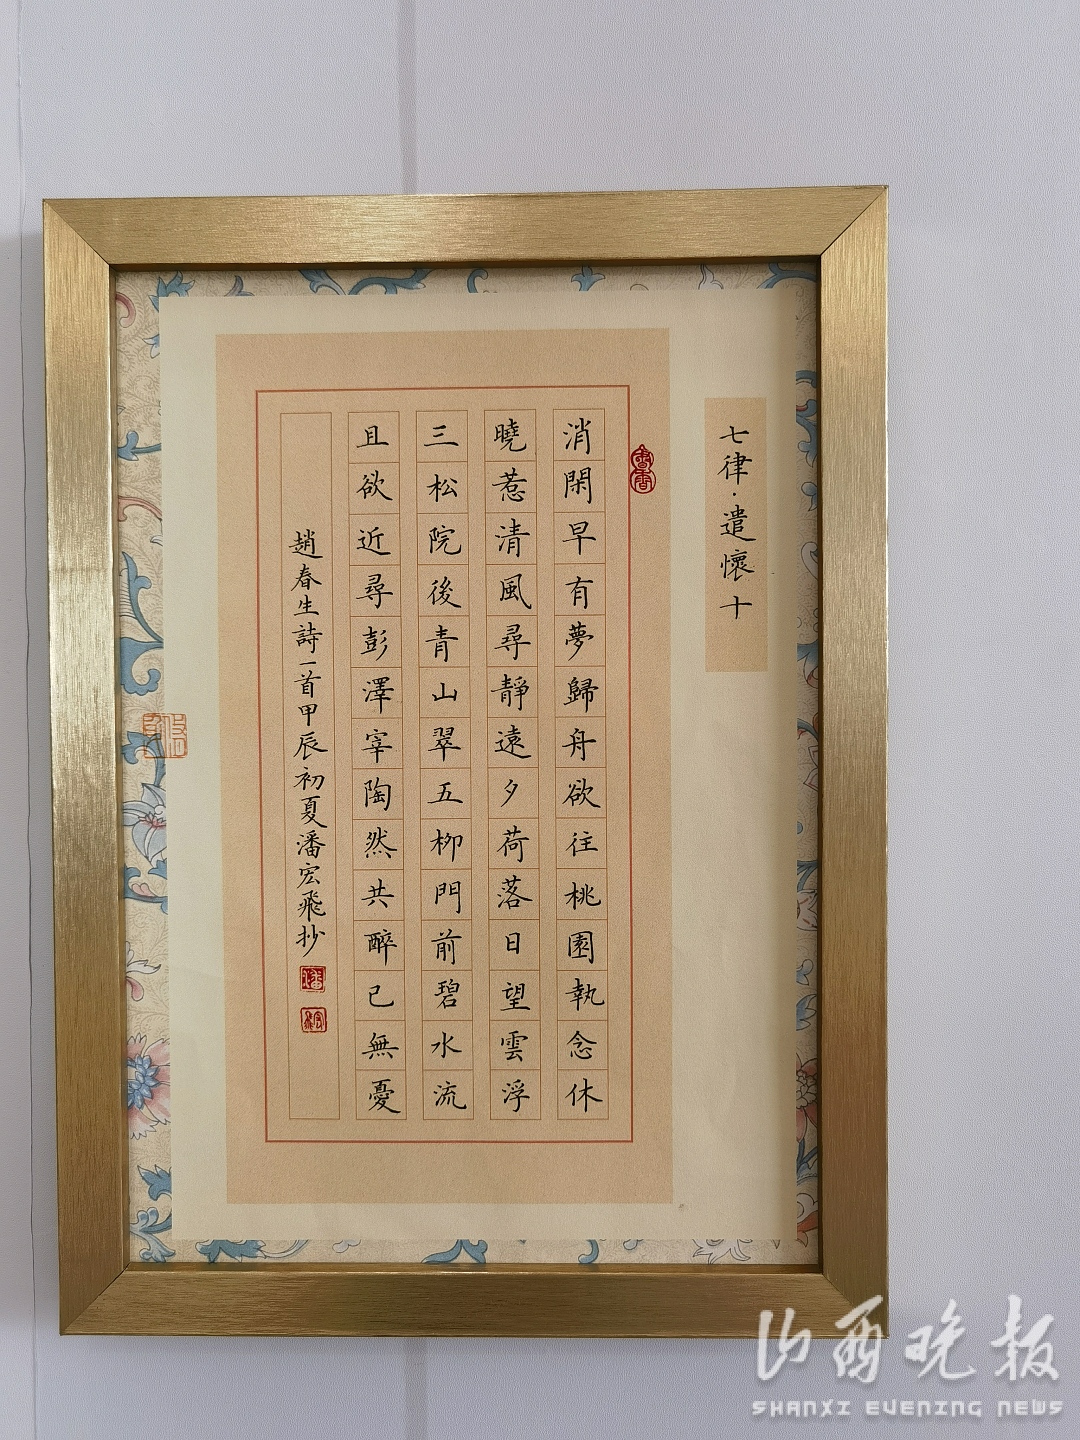 七律·遣懷十
消閑早有夢歸舟欲往桃園執念休
曉惹清風尋靜遠夕荷落日望雲浮
三松院後青山翠五柳門前碧水流
且欲近尋彭澤宰陶然共醉已無憂
趙春生詩一首甲辰初夏潘宏飛抄
山西晚报
SHANXI EVENING NEWS